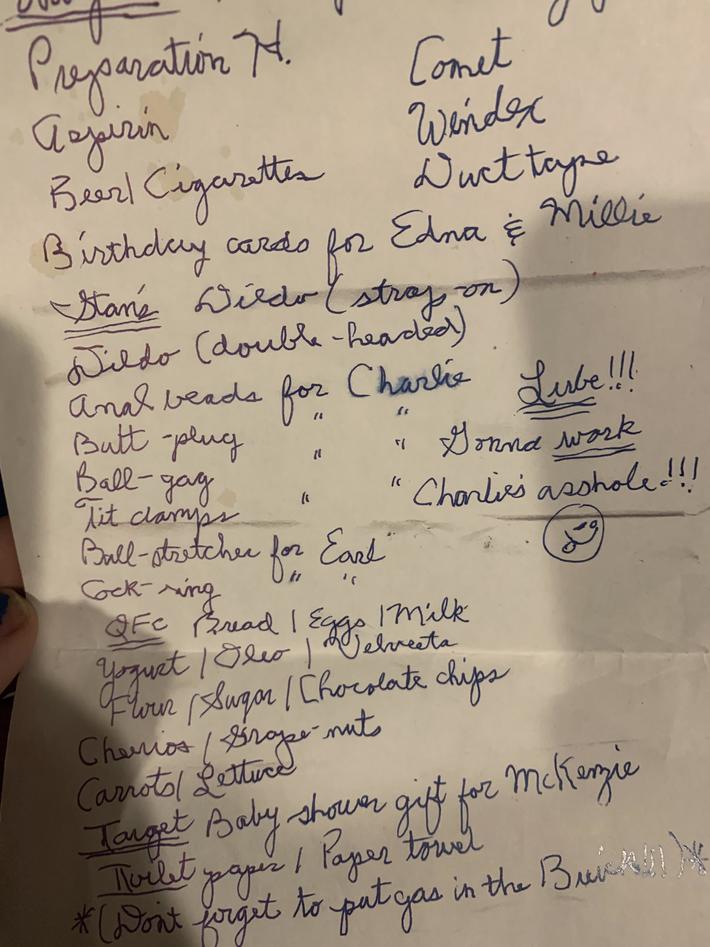 Preparation H. Comet
Aspirin Windex
Beer/Cigarettes Duct tape
Birthday cards for Edna & Millie
-Stan's Dildo (strap-on)
Dildo (double-headed)
Anal beads for Charlie Lube!!!
Butt-plug " " Gonna work
Ball-gag " " Charlie's asshole!!!
Tit clamps " "
Ball-stretcher for Earl
Cock-ring " "
QFC Bread / Eggs / Milk
Yogurt / Oleo / Velveeta
Flour / Sugar / Chocolate chips
Cheerios / Grape-nuts
Carrots/ Lettuce
Target Baby shower gift for McKenzie
Toilet paper / Paper towel
*(Dont forget to put gas in the Buick!!!)*